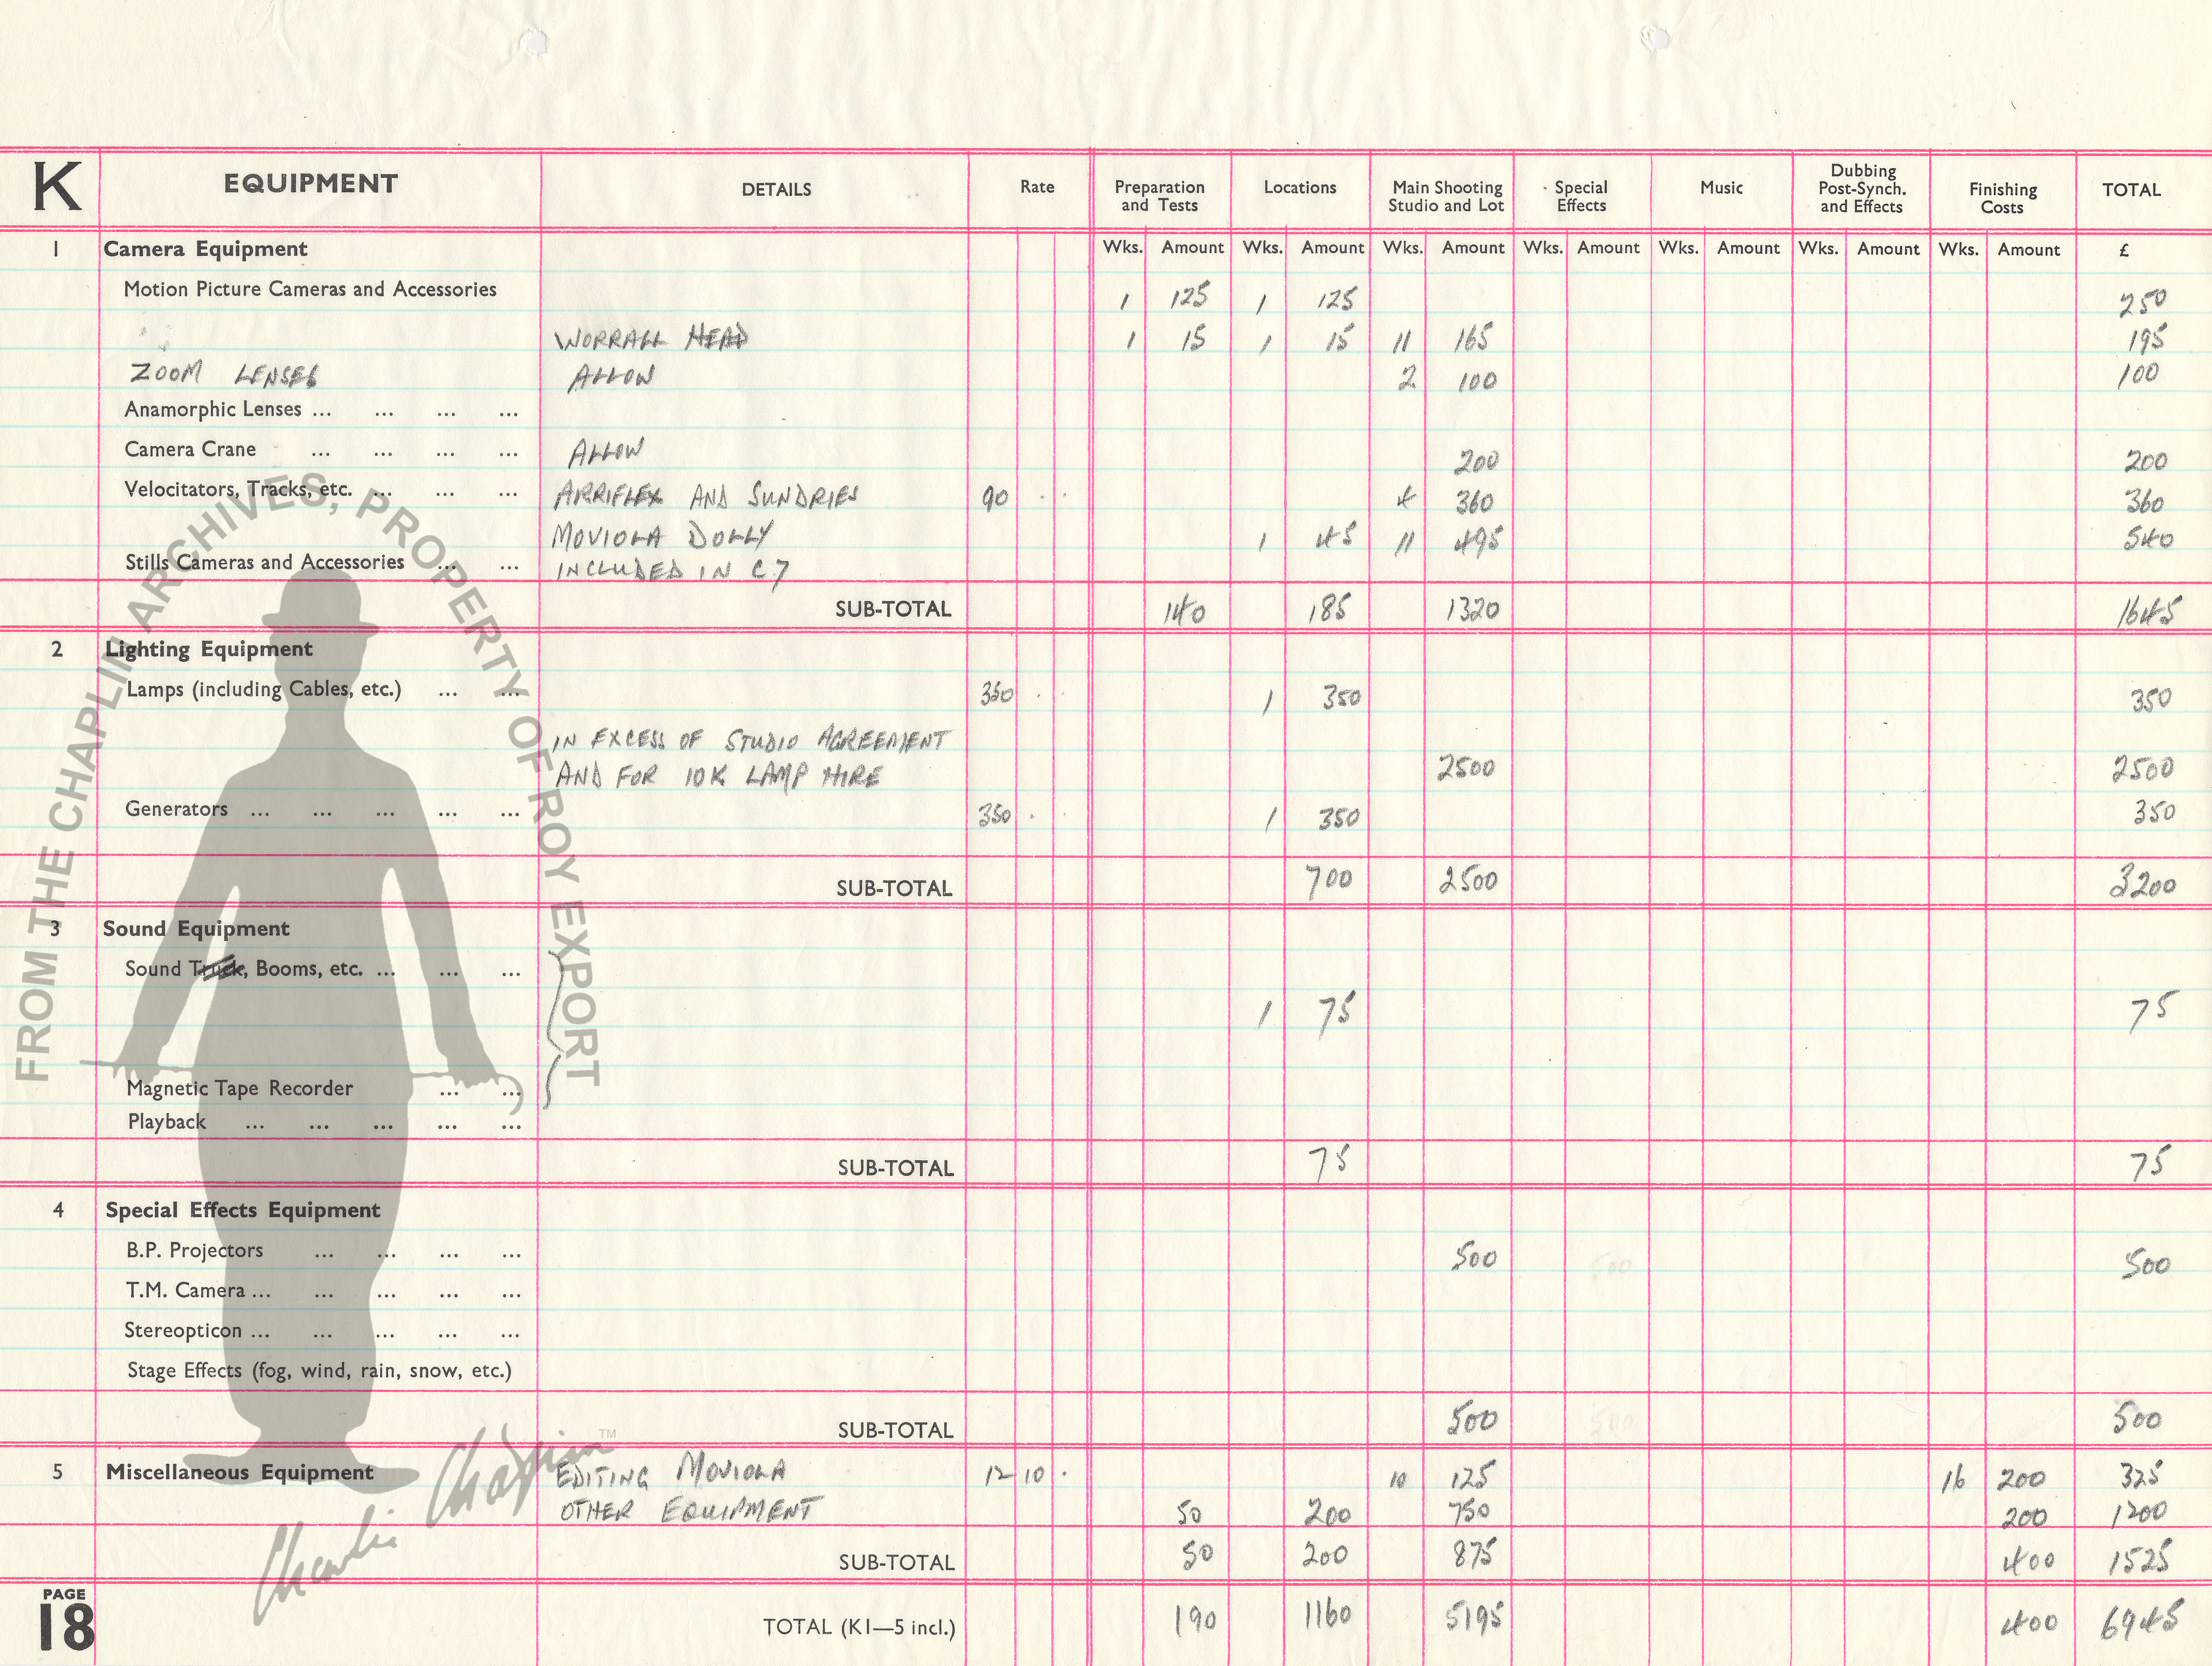 K EQUIPMENT DETAILS Rate Preparation and Tests Locations Main Shooting Studio and Lot Special Effects Music Dubbing Post-Synch. and Effects Finishing Costs TOTAL
1 Camera Equipment Wks. Amount Wks. Amount Wks. Amount Wks. Amount Wks. Amount Wks. Amount Wks. Amount £
Motion Picture Cameras and Accessories 1 125 1 125 250
WORRALL HEAD 1 15 1 15 11 165 195
ZOOM LENSES ALLOW 2 100 100
Anamorphic Lenses ... ... ... ...
Camera Crane ... ... ... ... ALLOW 200 200
Velocitators, Tracks, etc. ... ... ... ARRIFLEX AND SUNDRIES 90 . . 4 360 360
MOVIOLA DOLLY 1 45 11 495 540
Stills Cameras and Accessories ... ... INCLUDED IN C.7
SUB-TOTAL 140 185 1320 1645
2 Lighting Equipment
Lamps (including Cables, etc.) ... ... 350 . 1 350 350
IN EXCESS OF STUDIO AGREEMENT
AND FOR 10K LAMP HIRE 2500 2500
Generators ... ... ... ... ... 350 . . 1 350 350
SUB-TOTAL 700 2500 3200
3 Sound Equipment
Sound Truck, Booms, etc. ... ... ...
1 75 75
Magnetic Tape Recorder ... ...
Playback ... ... ... ... ...
SUB-TOTAL 75 75
4 Special Effects Equipment
B.P. Projectors ... ... ... ... 500 500 500
T.M. Camera ... ... ... ... ...
Stereopticon ... ... ... ... ...
Stage Effects (fog, wind, rain, snow, etc.)
SUB-TOTAL 500 500 500
5 Miscellaneous Equipment EDITING MOVIOLA 12 10 . 10 125 16 200 325
OTHER EQUIPMENT 50 200 750 200 1200
SUB-TOTAL 50 200 875 400 1525
PAGE
18 TOTAL (K1—5 incl.) 190 1160 5195 400 6945
FROM THE CHAPLIN ARCHIVES, PROPERTY OF ROY EXPORT
Charlie Chaplin TM